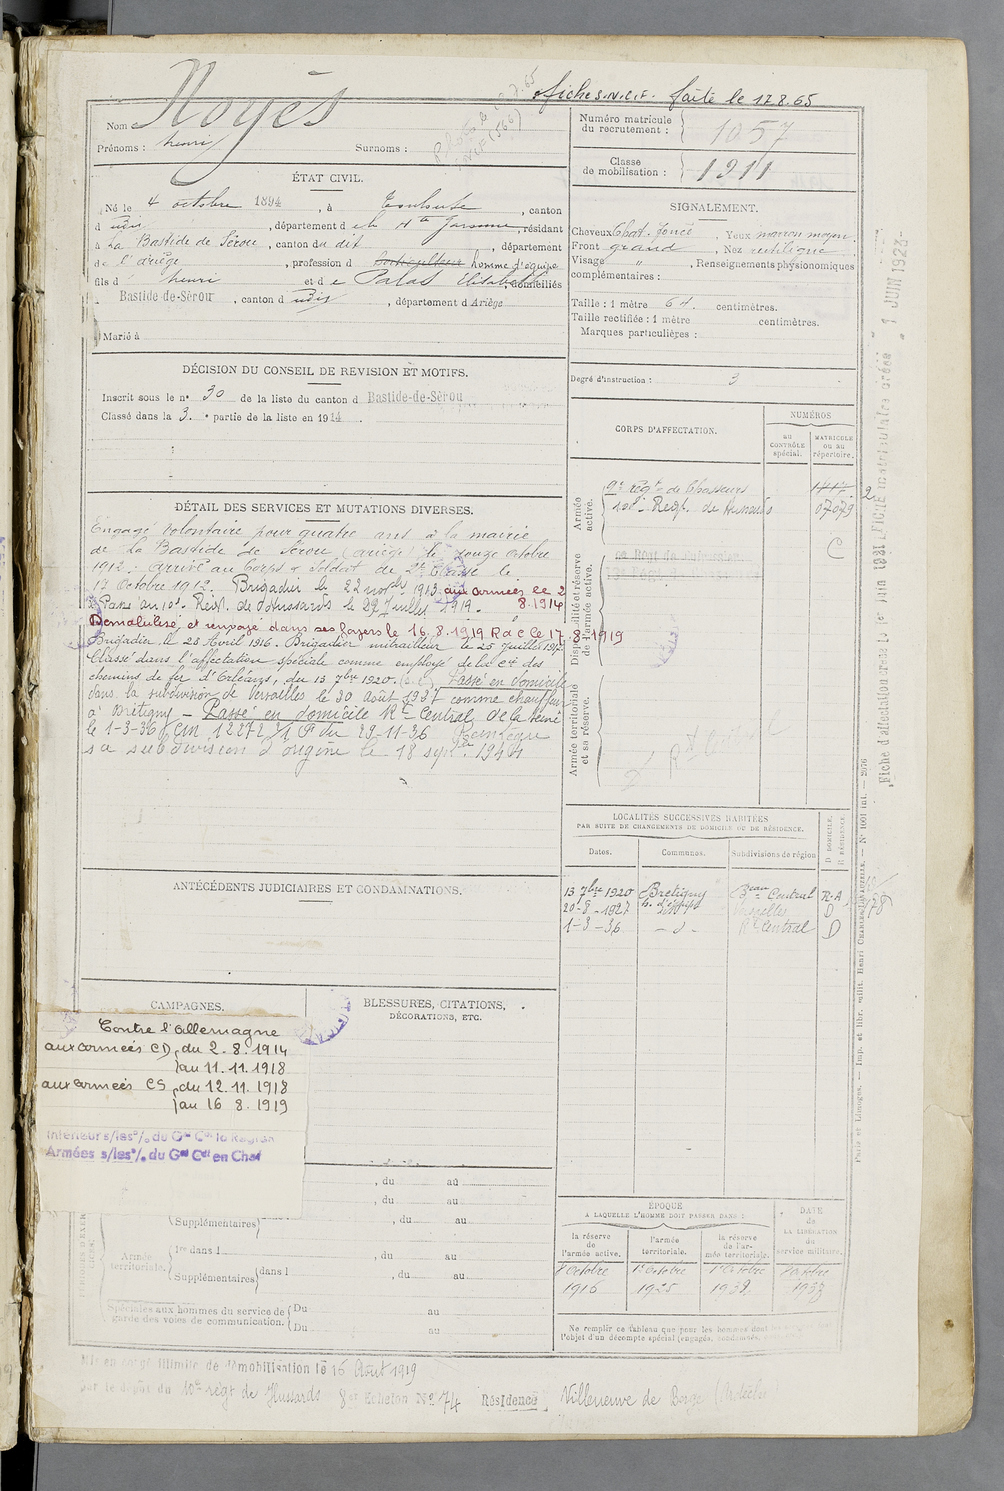 Noyès
fiche S.N.C.F. faite le 12.8.65
Nom
Prénoms : henri Surnoms :
Numéro matricule du recrutement : 1057
Classe de mobilisation : 1911
ÉTAT CIVIL.
Né le 4 octobre 1894, à Toulouse, canton
d udis, département d e la Hte Garonne, résidant
à La Bastide de Sérou, canton du dit, département
de l'ariège, profession d homme d'équipe
fils d henri et d e Palas Elisabeth, domiciliés
Bastide-de-Sérou, canton d udis, département d Ariège
Marié à
SIGNALEMENT.
Cheveux Chat. foncé, Yeux marron moyen
Front grand, Nez rectiligne
Visage " , Renseignements physionomiques
complémentaires :
Taille : 1 mètre 64. centimètres.
Taille rectifiée : 1 mètre centimètres.
Marques particulières :
Degré d'instruction : 3
DÉCISION DU CONSEIL DE REVISION ET MOTIFS.
Inscrit sous le n° 30 de la liste du canton d Bastide-de-Sérou
Classé dans la 3. e partie de la liste en 1914.
CORPS D'AFFECTATION.
NUMÉROS
au CONTRÔLE spécial.
MATRICULE ou au répertoire.
Armée active.
9e régt de Chasseurs
10e Regt. de Hussards 07079
C
Disponibilité et réserve de l'armée active.
Armée territoriale et sa réserve.
Rt Central
DÉTAIL DES SERVICES ET MUTATIONS DIVERSES.
Engagé volontaire pour quatre ans à la mairie
de La Bastide de Sérou (ariège) le douze octobre
1912. arrivé au Corps & soldat de 2e Classe le
17 Octobre 1912. Brigadier le 22 novbre 1913. aux armées le 2
Passé au 10e Regt. de Hussards le 29 Juillet 1919. 8.1914
Démobilisé et renvoyé dans ses foyers le 16.8.1919 R d C le 17.8.1919
Brigadier le 23 Avril 1916. Brigadier mitrailleur le 25 Juillet 1917
Classé dans l'affectation spéciale comme employé de la Cie des
chemins de fer d'Orléans, du 13 7bre 1920. Passé en domicile
dans la subdivision de Versailles le 30 Août 1927 comme chauffeur
à Brétigny – Passé en domicile Rt Central de la Seine
le 1-3-36 du 23-11-36
sa subdivision d'origine le 18 sept. 1944
ANTÉCÉDENTS JUDICIAIRES ET CONDAMNATIONS.
LOCALITÉS SUCCESSIVES HABITÉES
PAR SUITE DE CHANGEMENTS DE DOMICILE OU DE RÉSIDENCE.
Dates. Communes. Subdivisions de région D DOMICILE. R RÉSIDENCE.
13 7bre 1920 Bretigny Beau Central R.A
20-8-1927 Versailles D
1-3-36 – d – Rt Central D
CAMPAGNES.
Contre l'Allemagne
aux armées CD du 2.8.1914
au 11.11.1918
aux armées CS du 12.11.1918
au 16 8.1919
Armées s/les °/. du Gal Cdt en Chef
BLESSURES, CITATIONS,
DÉCORATIONS, ETC.
, du au
, du au
Supplémentaires , du au
Armée territoriale.
1re dans l , du au
Supplémentaires dans l , du au
Spéciales aux hommes du service de garde des voies de communication.
Du au
Du au
ÉPOQUE
A LAQUELLE L'HOMME DOIT PASSER DANS :
la réserve de l'armée active.
l'armée territoriale.
la réserve de l'armée territoriale.
DATE de LA LIBÉRATION du service militaire.
1er Octobre 1916
1er Octobre 1925
Ne remplir ce tableau que pour les hommes dont
l'objet d'un décompte spécial (engagés,
Mis en congé illimité de démobilisation le 16 Août 1919
par le dépôt du 10e régt de Hussards 8e Echelon No 74 Résidence Villeneuve de Berg (Ardèche)
Fiche d'affectation
1 JUIN 1923
Paris et Limoges. — Imp. et libr. milit. Henri CHARLES-LAVAUZELLE. — N° 1601 int. — 2976